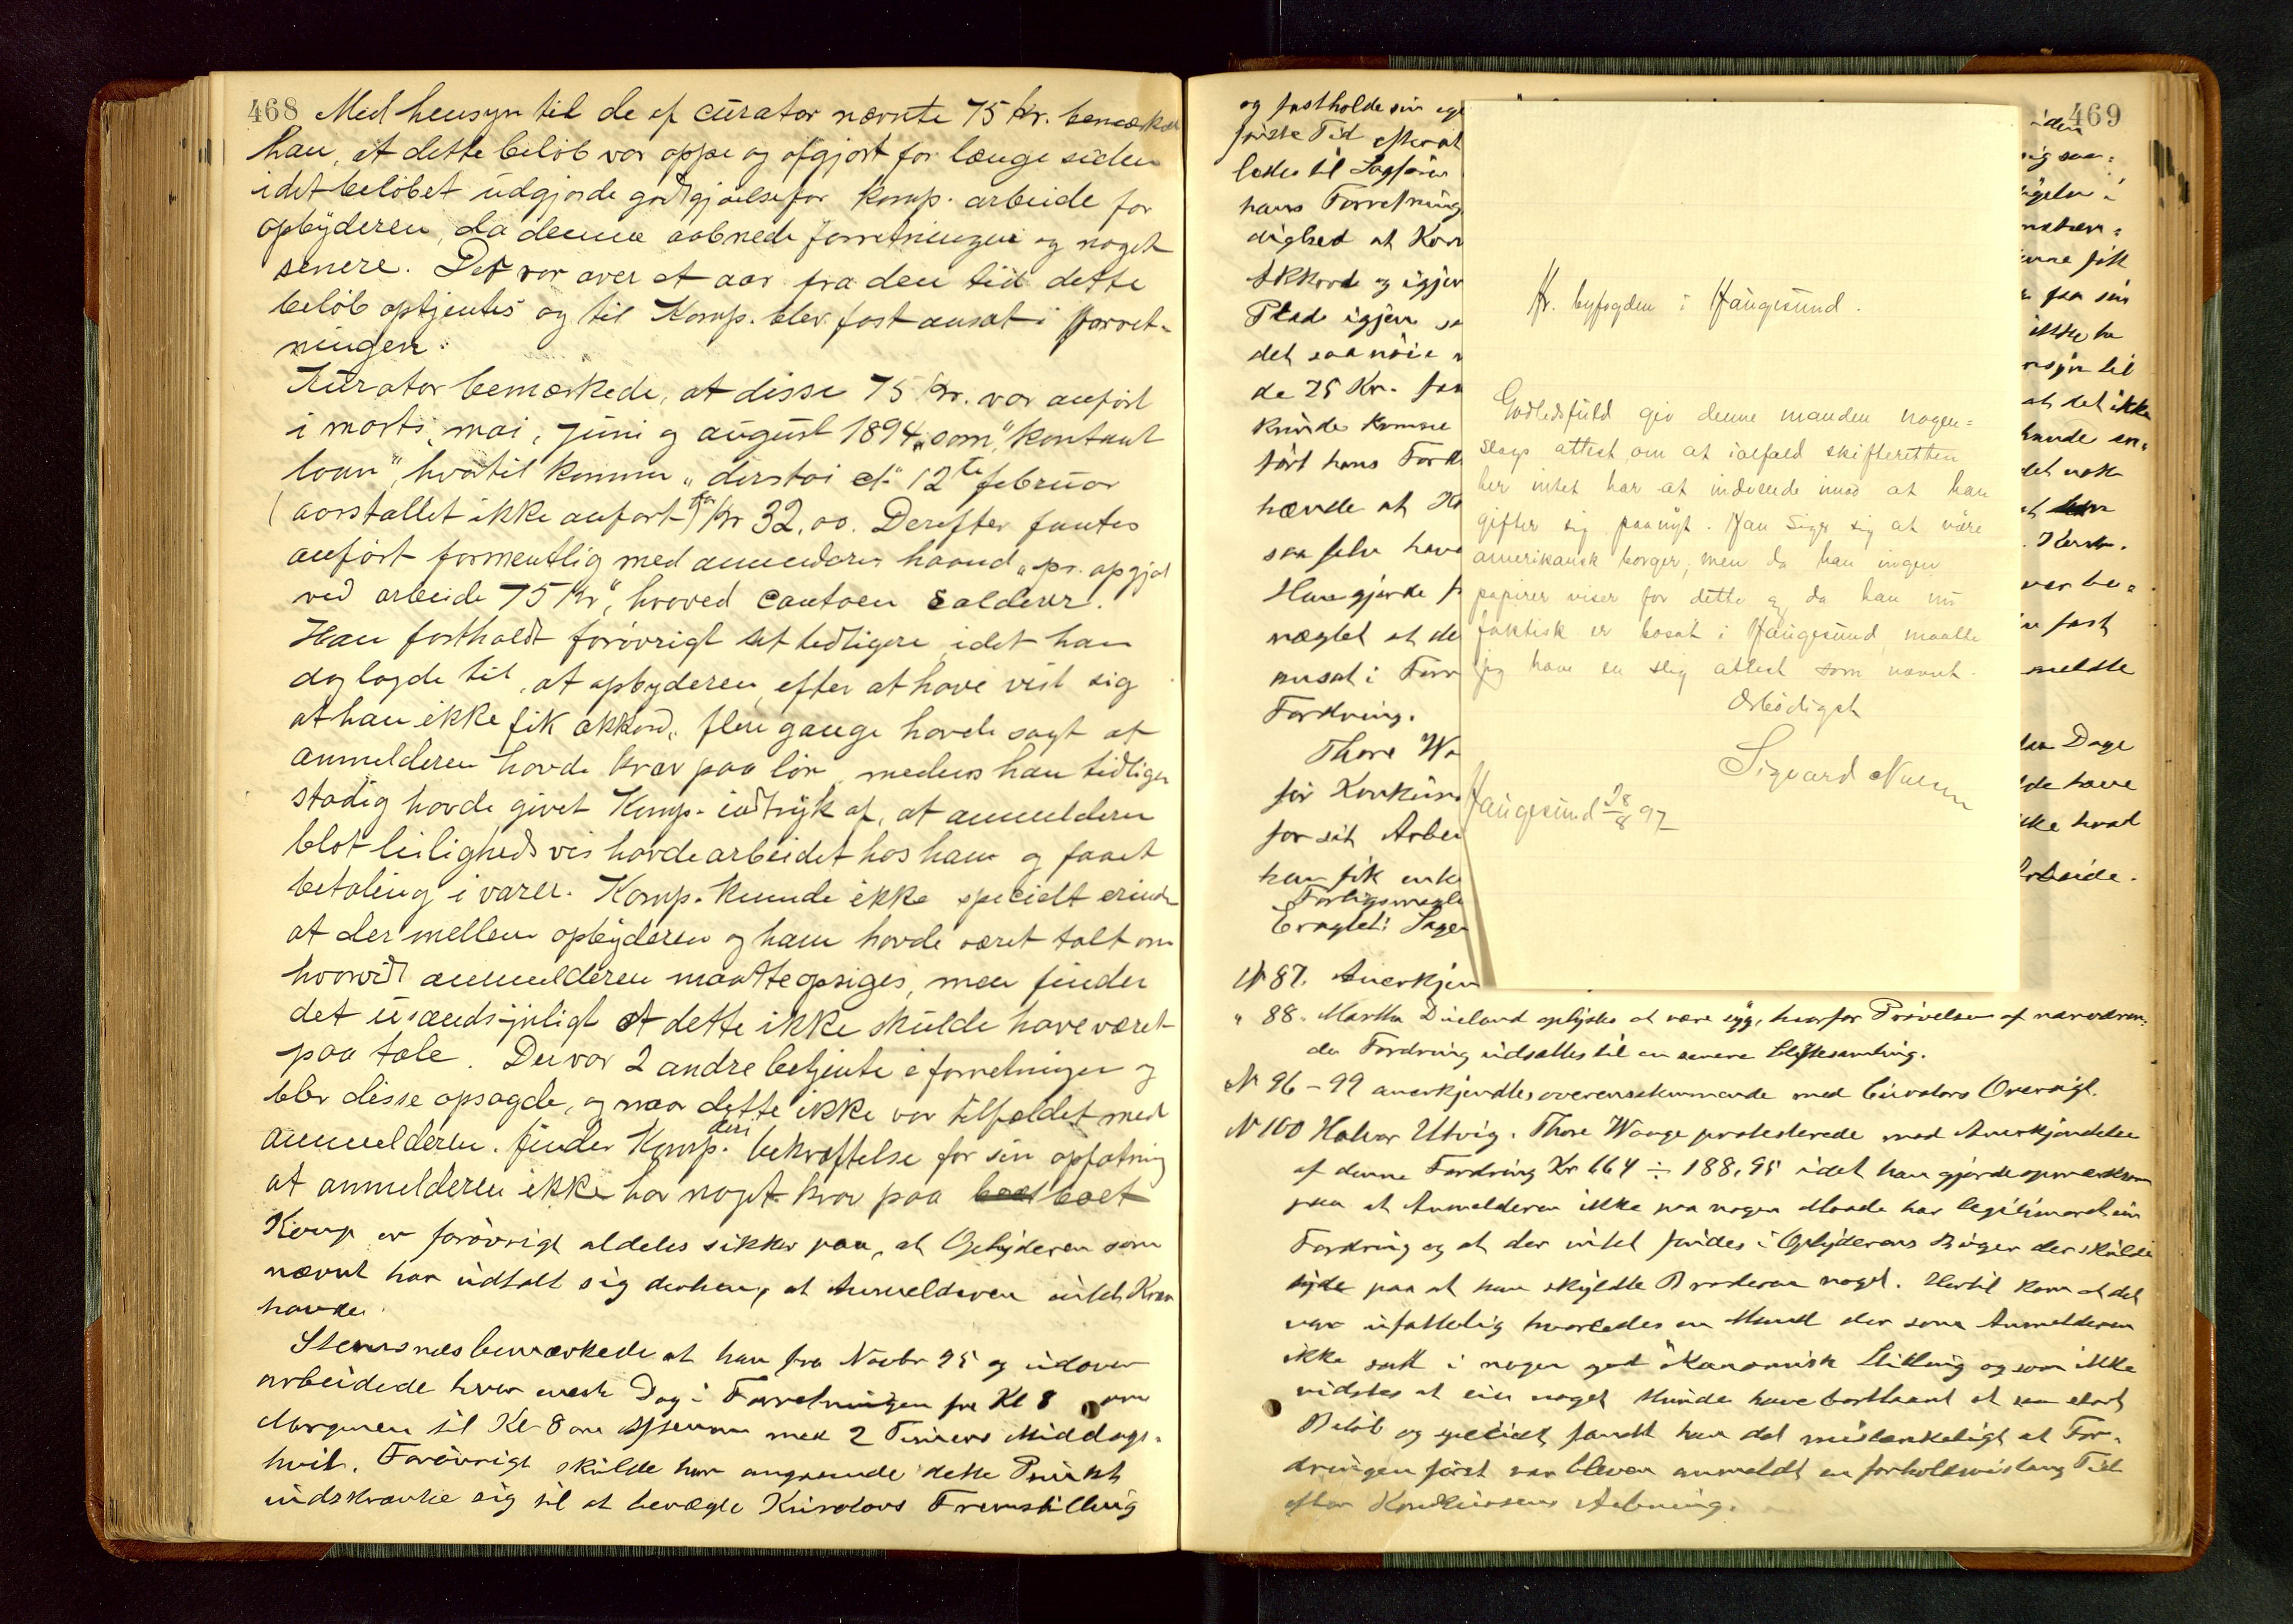 468 Med hensyn til de af curator nævnte 75 kr. bemærket
han, at dette beløb var oppe og afgjort for længe siden
idet beløbet udgjorde godtgjørelse for Komp. arbeide for
opbyderen, da denne aabnede forretningen og noget
senere. Det var over et aar fra den tid dette
beløb optjentes og til Komp. blev fast ansat i forret-
ningen.
Kurator bemærkede, at disse 75 kr. var anført
i marts, mai, juni og august 1894 som "kontant
laan", hvortil kommer 12te februar
(aarstallet ikke anført) Kr 32,00. Derefter fantes
anført formentlig med anmelderens haand "pr. opgjør
ved arbeide 75 Kr", hvorved contoen salderer.
Han fastholdt forøvrigt sit tidligere idet han
dog lagde til, at opbyderen, efter at have vist sig
at han ikke fik akkord, flere gange havde sagt at
anmelderen havde krav paa løn, medens han tidligere
stadig havde givet Komp. indtryk af, at anmelderen
blot leilighedsvis havde arbeidet hos ham og faaet
betaling i varer. Komp. kunde ikke specielt erindre
at der mellem opbyderen og ham havde været talt om
hvorvidt anmelderen maatte opsiges, men finder
det usandsynligt at dette ikke skulde have været
paa tale. Der var 2 andre betjente i forretningen og
blev disse opsagde, og naar dette ikke var tilfældet med
anmelderen. finder Komp. deri bekræftelse for sin opfatning
at anmelderen ikke har noget krav paa boet
Komp er forøvrigt aldeles sikker paa, at Opbyderen som
nævnt har udtalt sig derhen, at Anmelderen intet Krav
havde.
Stensnes bemærkede at han fra Novbr 95 og udover
arbeidede hver eneste Dag i Forretningen fra Kl 8 om
Morgenen til Kl 8 om Aftenen med 2 Timers Middags-
hvil. Forøvrigt skulde han angaaende dette Punkt
indskrænke sig til at benægte Kurators Fremstilling
469
og fastholde sin
første Tid efter at
lades til Sagfører
hans Forretning
dighed at
Akkord og igjen
Plads igjen
det saa nøie
de 75 Kr.
kunde komme
ført hans
hævde at
saa selv have
Han gjorde
nægtet at
ansat i
Fordring.
Thore
før Konkurs
for sit
han fik
Forligsmægl
Eragtet: Sagen
Hr. byfogden i Haugesund.
Godhedsfuld giv denne manden nogen-
slags attest, om at ialfald skifteretten
her intet har at indvende imod at han
gifter sig paanyt. Han siger sig at være
amerikansk borger, men da han ingen
papirer viser for dette og da han nu
faktisk er bosat i Haugesund, maatte
jeg have en slig attest som nævnt.
Ærbødigst
Sigvard
Haugesund 28/8 97
fik
paa sin
ikke ha
hensyn til
at det ikke
havde
det nok
var be-
fast
meldte
Dage
have
ikke hvad
Arbeide.
N 87. Anerkjen
" 88. Martha oplystes at være syg, hvorfor Prøvelsen af nærværen-
de Fordring udsættes til en senere Skiftesamling.
N 96 – 99 anerkjendtes overensstemmende med Curators Oversigt.
N 100 Halvor Utvig. Thore Waage protesterede mod Anerkjendelse
af denne Fordring Kr 664 ÷ 188,95 idet han gjorde opmærksom
paa at Anmelderen ikke paa nogen Maade har legitimeret sin
Fordring og at der intet findes i Opbyderens Bøger der skulde
tyde paa at han skyldte Broderen noget. Hertil kom at det
var ufattelig hvorledes en Mand der som Anmelderen
ikke sad i nogen god økonomisk Stilling og som ikke
vidstes at eie noget skunde have bortlaant et saa stort
Beløb og specielt fandt han det mistænkeligt at For-
dringen først var bleven anmeldt en forholdsvis lang Tid
efter Konkursens Aabning.